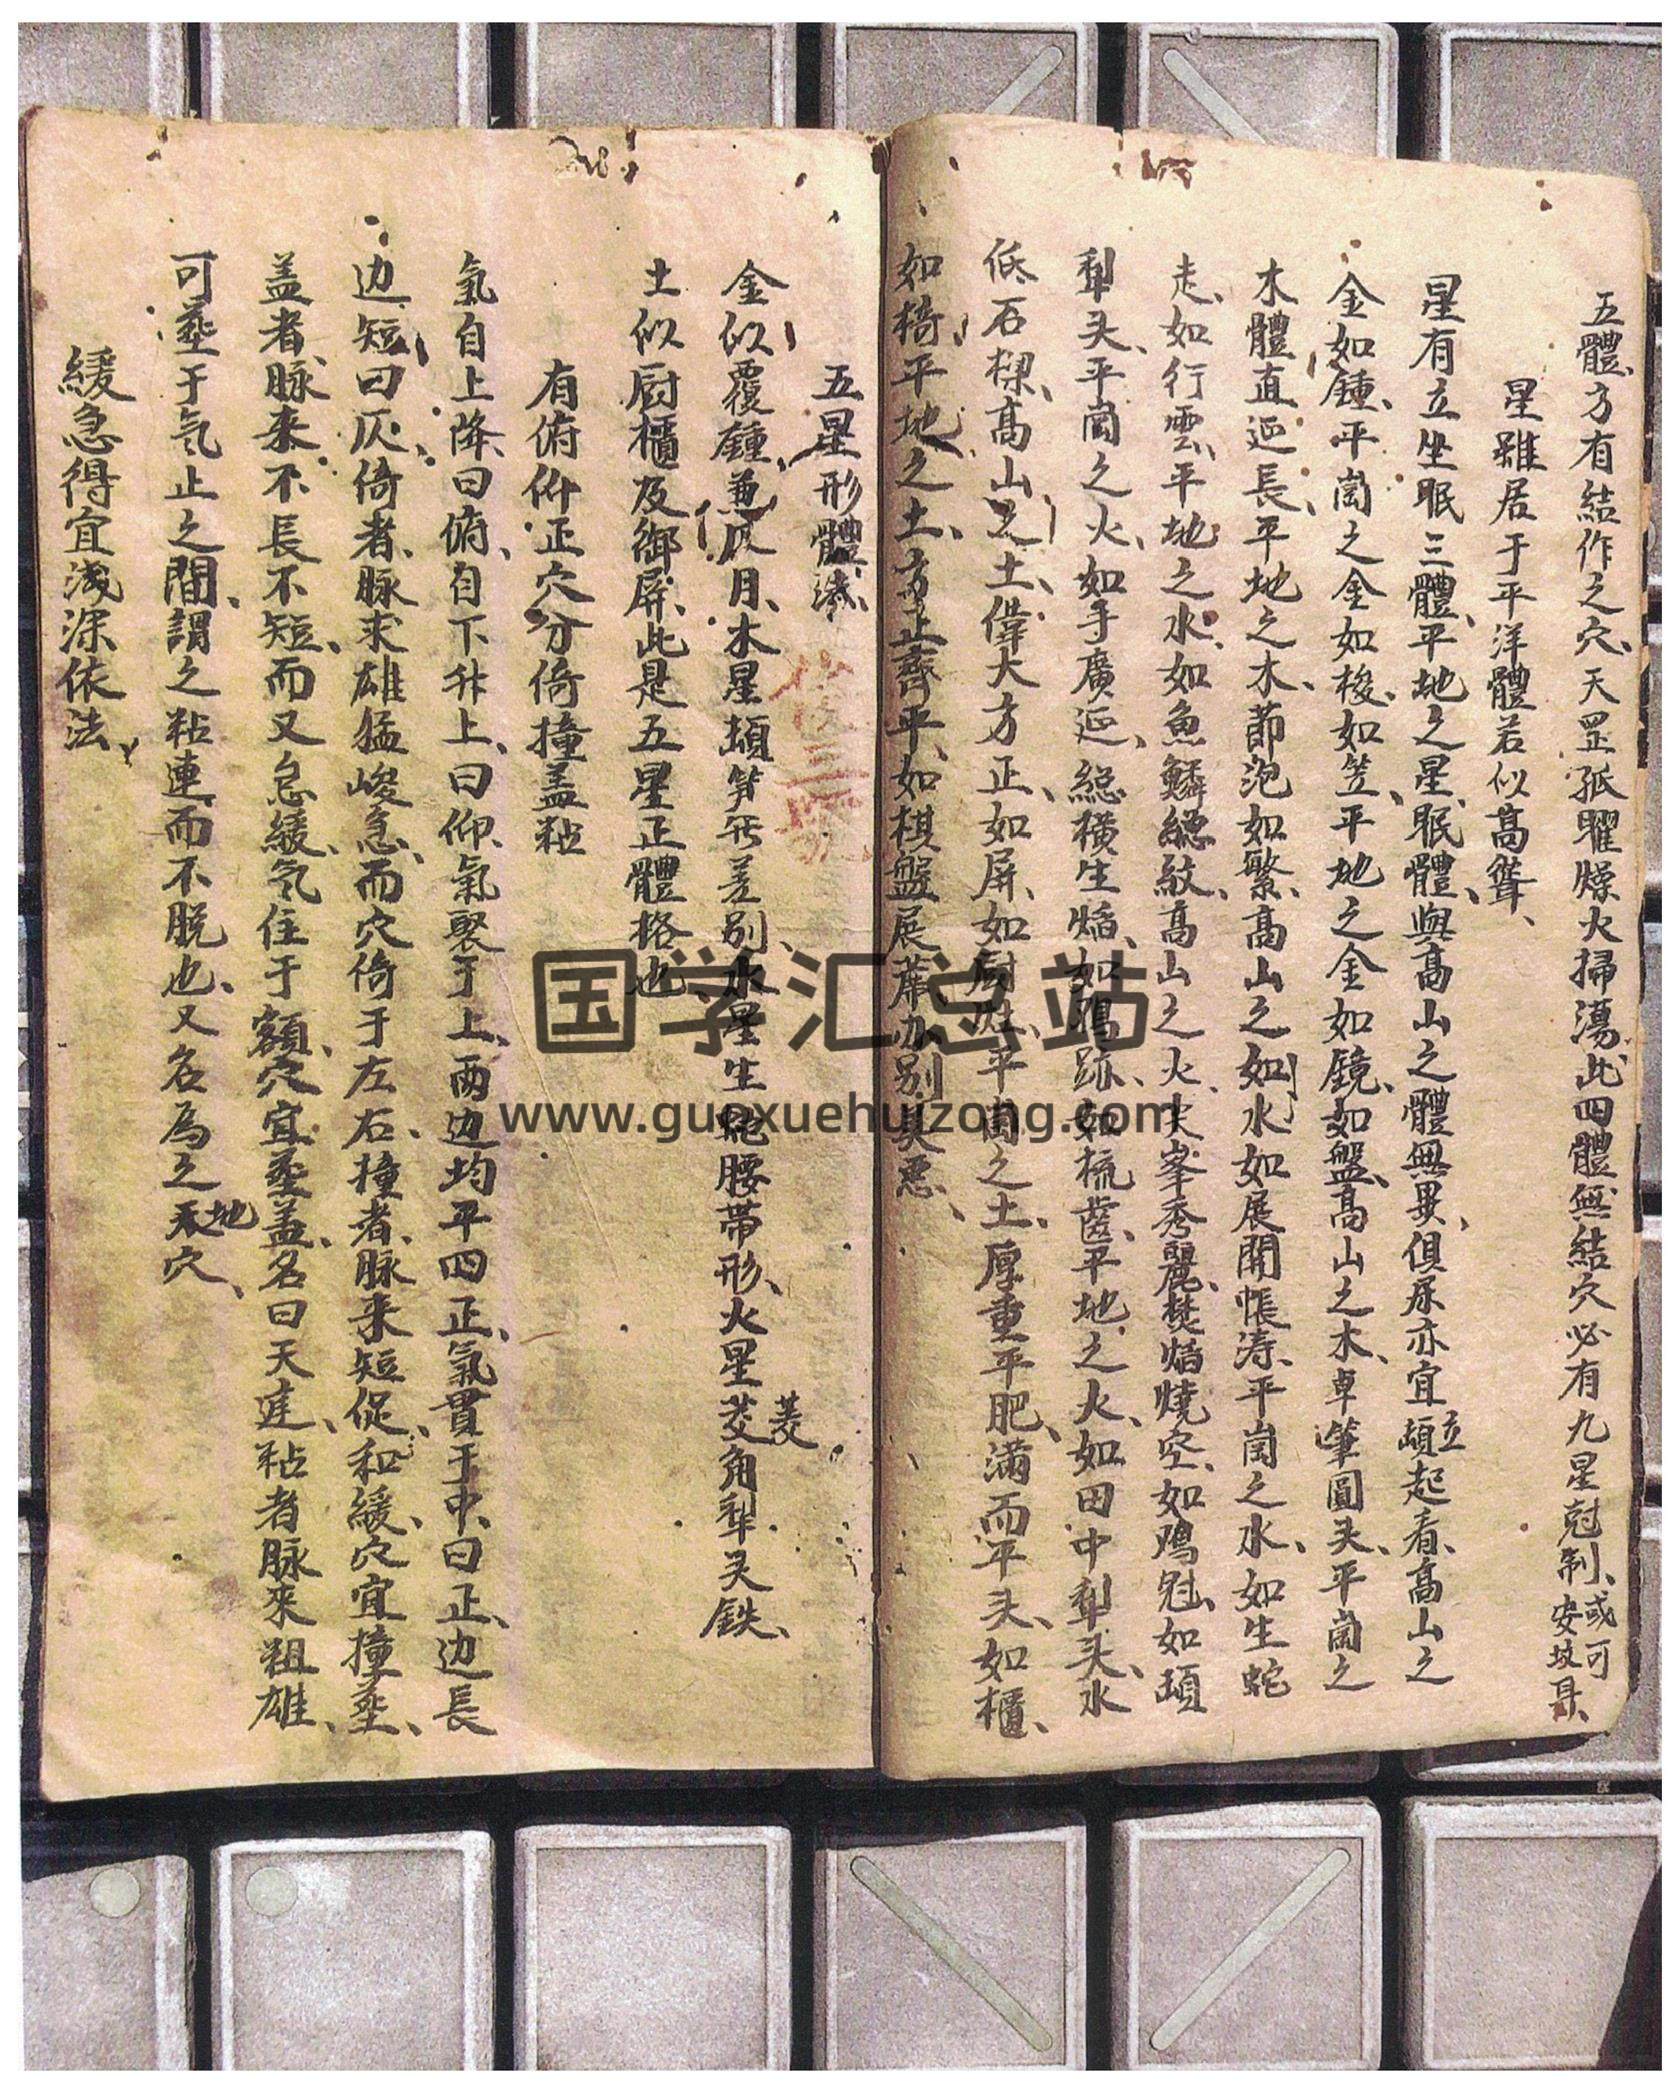 五體、方有結作之穴、天罡孤曜燥火掃蕩、此四體無結穴必有九星尅制、或可安坟耳、
星雖居于平洋體若似高聳、
星有立坐眠三體、平地之星、眠體、與高山之體無異、俱承亦宜立起看、高山之
金如鍾、平崗之金如梭、如笠、平地之金如鏡、如盤、高山之木、卓筆圓头、平崗之
木體直延長、平地之木、節泡如繫、高山之如水如展開帳涛、平崗之水、如生蛇
走、如行雲、平地之水、如魚鱗緦紋、高山之火、尖峯秀麗、焚焰燒空、如鸡冠、如
犁头、平崗之火、如手廣延、緦横生焰、如鴉跡、如梳齒、平地之火、如田中犁头、水
低石樑、高山之土、偉大方正、如屏、如厨柜、平崗之土、厚重平肥、满而平头、如櫃、
如椅、平地之土、方正齊平、如棋盤展蓆、办别美恶、
五星形體法、
金似覆鍾兼瓜月、木星頓笋无差别、水星生蛇腰带形、火星菱角犁头鉄、
菱
土似厨櫃及御屏、此是五星正體格也
有俯仰正穴分倚撞盖粘
氣自上降、曰俯、自下升上、曰仰、氣聚于上、两边均平四正、氣貫于中、曰正、边長
边短、曰仄、倚者、脉来雄猛峻急、而穴倚于左右、撞者、脉来短促、和緩、穴宜撞塟、
盖者、脉来不長不短、而又急緩、氕住于額、穴宜塟盖、名曰天連、粘者脉來粗雄、
可塟于氕止之間、謂之粘連而不脱也、又名為之地穴、
緩急得宜浅深依法、
国学汇总站
www.guoxuehuizong.com